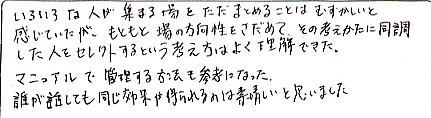 いろいろな人が集まる場をただまとめることはむずかしいと
感じていたが、もともと場の方向性をさだめて、その考えかたに同調
した人をセレクトするという考え方はよく理解できた。
マニュアルで管理する方法も参考になった。
誰が話しても同じ効果が得られるのは素晴しいと思いました